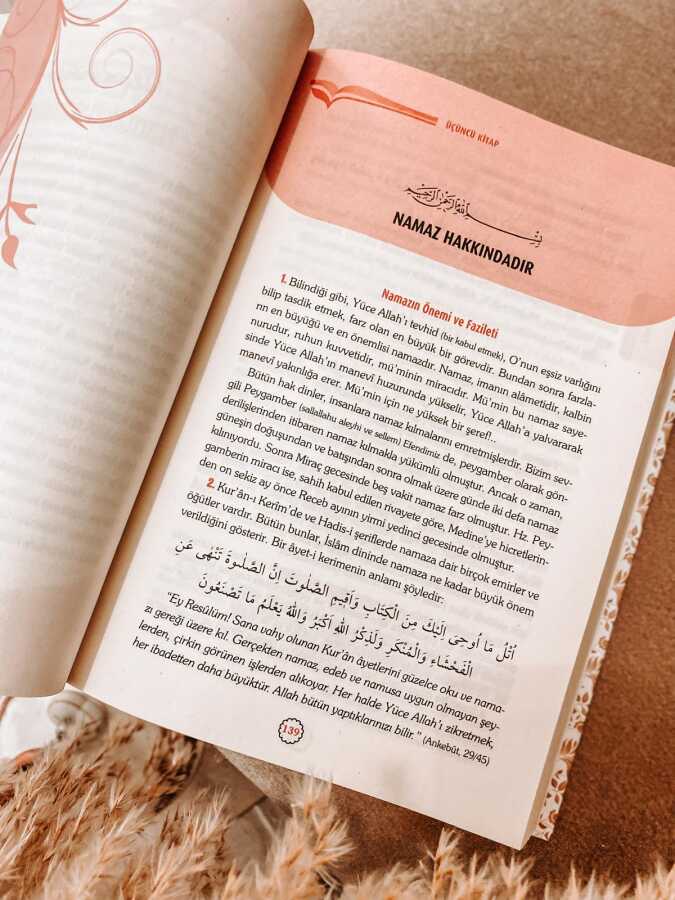 ÜÇÜNCÜ KİTAP
بِسْمِ اللهِ الرَّحْمٰنِ الرَّحِيمِ
NAMAZ HAKKINDADIR
Namazın Önemi ve Fazileti
1. Bilindiği gibi, Yüce Allah'ı tevhid (bir kabul etmek), O'nun eşsiz varlığını
bilip tasdik etmek, farz olan en büyük bir görevdir. Bundan sonra farzla-
rın en büyüğü ve en önemlisi namazdır. Namaz, imanın alâmetidir, kalbin
nurudur, ruhun kuvvetidir, mü'minin miracıdır. Mü'min bu namaz saye-
sinde Yüce Allah'ın manevî huzurunda yükselir, Yüce Allah'a yalvararak
manevî yakınlığa erer. Mü'min için ne yüksek bir şeref!..
Bütün hak dinler, insanlara namaz kılmalarını emretmişlerdir. Bizim sev-
gili Peygamber (sallallahu aleyhi ve sellem) Efendimiz de, peygamber olarak gön-
derilişlerinden itibaren namaz kılmakla yükümlü olmuştur. Ancak o zaman,
güneşin doğuşundan ve batışından sonra olmak üzere günde iki defa namaz
kılınıyordu. Sonra Miraç gecesinde beş vakit namaz farz olmuştur. Hz. Pey-
gamberin miracı ise, sahih kabul edilen rivayete göre, Medine'ye hicretlerin-
den on sekiz ay önce Receb ayının yirmi yedinci gecesinde olmuştur.
2. Kur'ân-ı Kerîm'de ve Hadis-i şeriflerde namaza dair birçok emirler ve
öğütler vardır. Bütün bunlar, İslâm dininde namaza ne kadar büyük önem
verildiğini gösterir. Bir âyet-i kerimenin anlamı şöyledir:
اُتْلُ مَا اُوحِىَ اِلَيْكَ مِنَ الْكِتَابِ وَاَقِيمِ الصَّلٰوةَ اِنَّ الصَّلٰوةَ تَنْهٰى عَنِ
الْفَحْشَاءِ وَالْمُنْكَرِ وَلَذِكْرُ اللهِ اَكْبَرُ وَاللهُ يَعْلَمُ مَا تَصْنَعُونَ
"Ey Resûlüm! Sana vahy olunan Kur'ân âyetlerini güzelce oku ve nama-
zı gereği üzere kıl. Gerçekten namaz, edeb ve namusa uygun olmayan şey-
lerden, çirkin görünen işlerden alıkoyar. Her halde Yüce Allah'ı zikretmek,
her ibadetten daha büyüktür. Allah bütün yaptıklarınızı bilir." (Ankebût, 29/45)
139